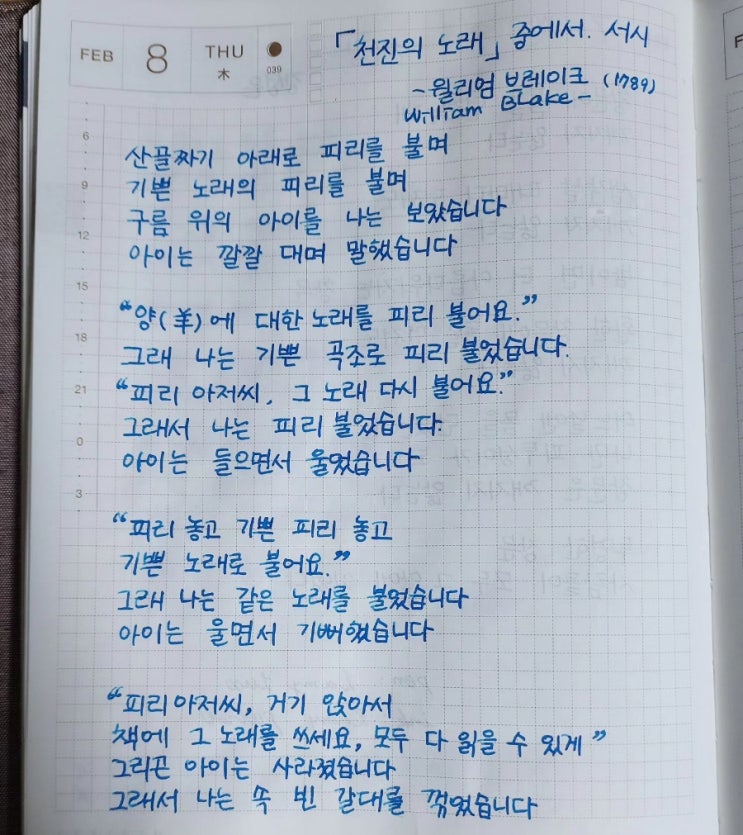 FEB 8 THU 木 039
「천진의 노래」 중에서. 서시
- 윌리엄 브레이크 (1789)
William Blake -
6
산골짜기 아래로 피리를 불며
9
기쁜 노래의 피리를 불며
구름 위의 아이를 나는 보았습니다
12
아이는 깔깔 대며 말했습니다
15
"양(羊)에 대한 노래를 피리 불어요."
18
그래 나는 기쁜 곡조로 피리 불었습니다.
21
"피리 아저씨, 그 노래 다시 불어요."
그래서 나는 피리 불었습니다.
0
아이는 들으면서 울었습니다
3
"피리 놓고 기쁜 피리 놓고
기쁜 노래로 불어요."
그래 나는 같은 노래를 불었습니다
아이는 울면서 기뻐했습니다
"피리아저씨, 거기 앉아서
책에 그 노래를 쓰세요, 모두 다 읽을 수 있게"
그리곤 아이는 사라졌습니다
그래서 나는 속 빈 갈대를 꺾었습니다